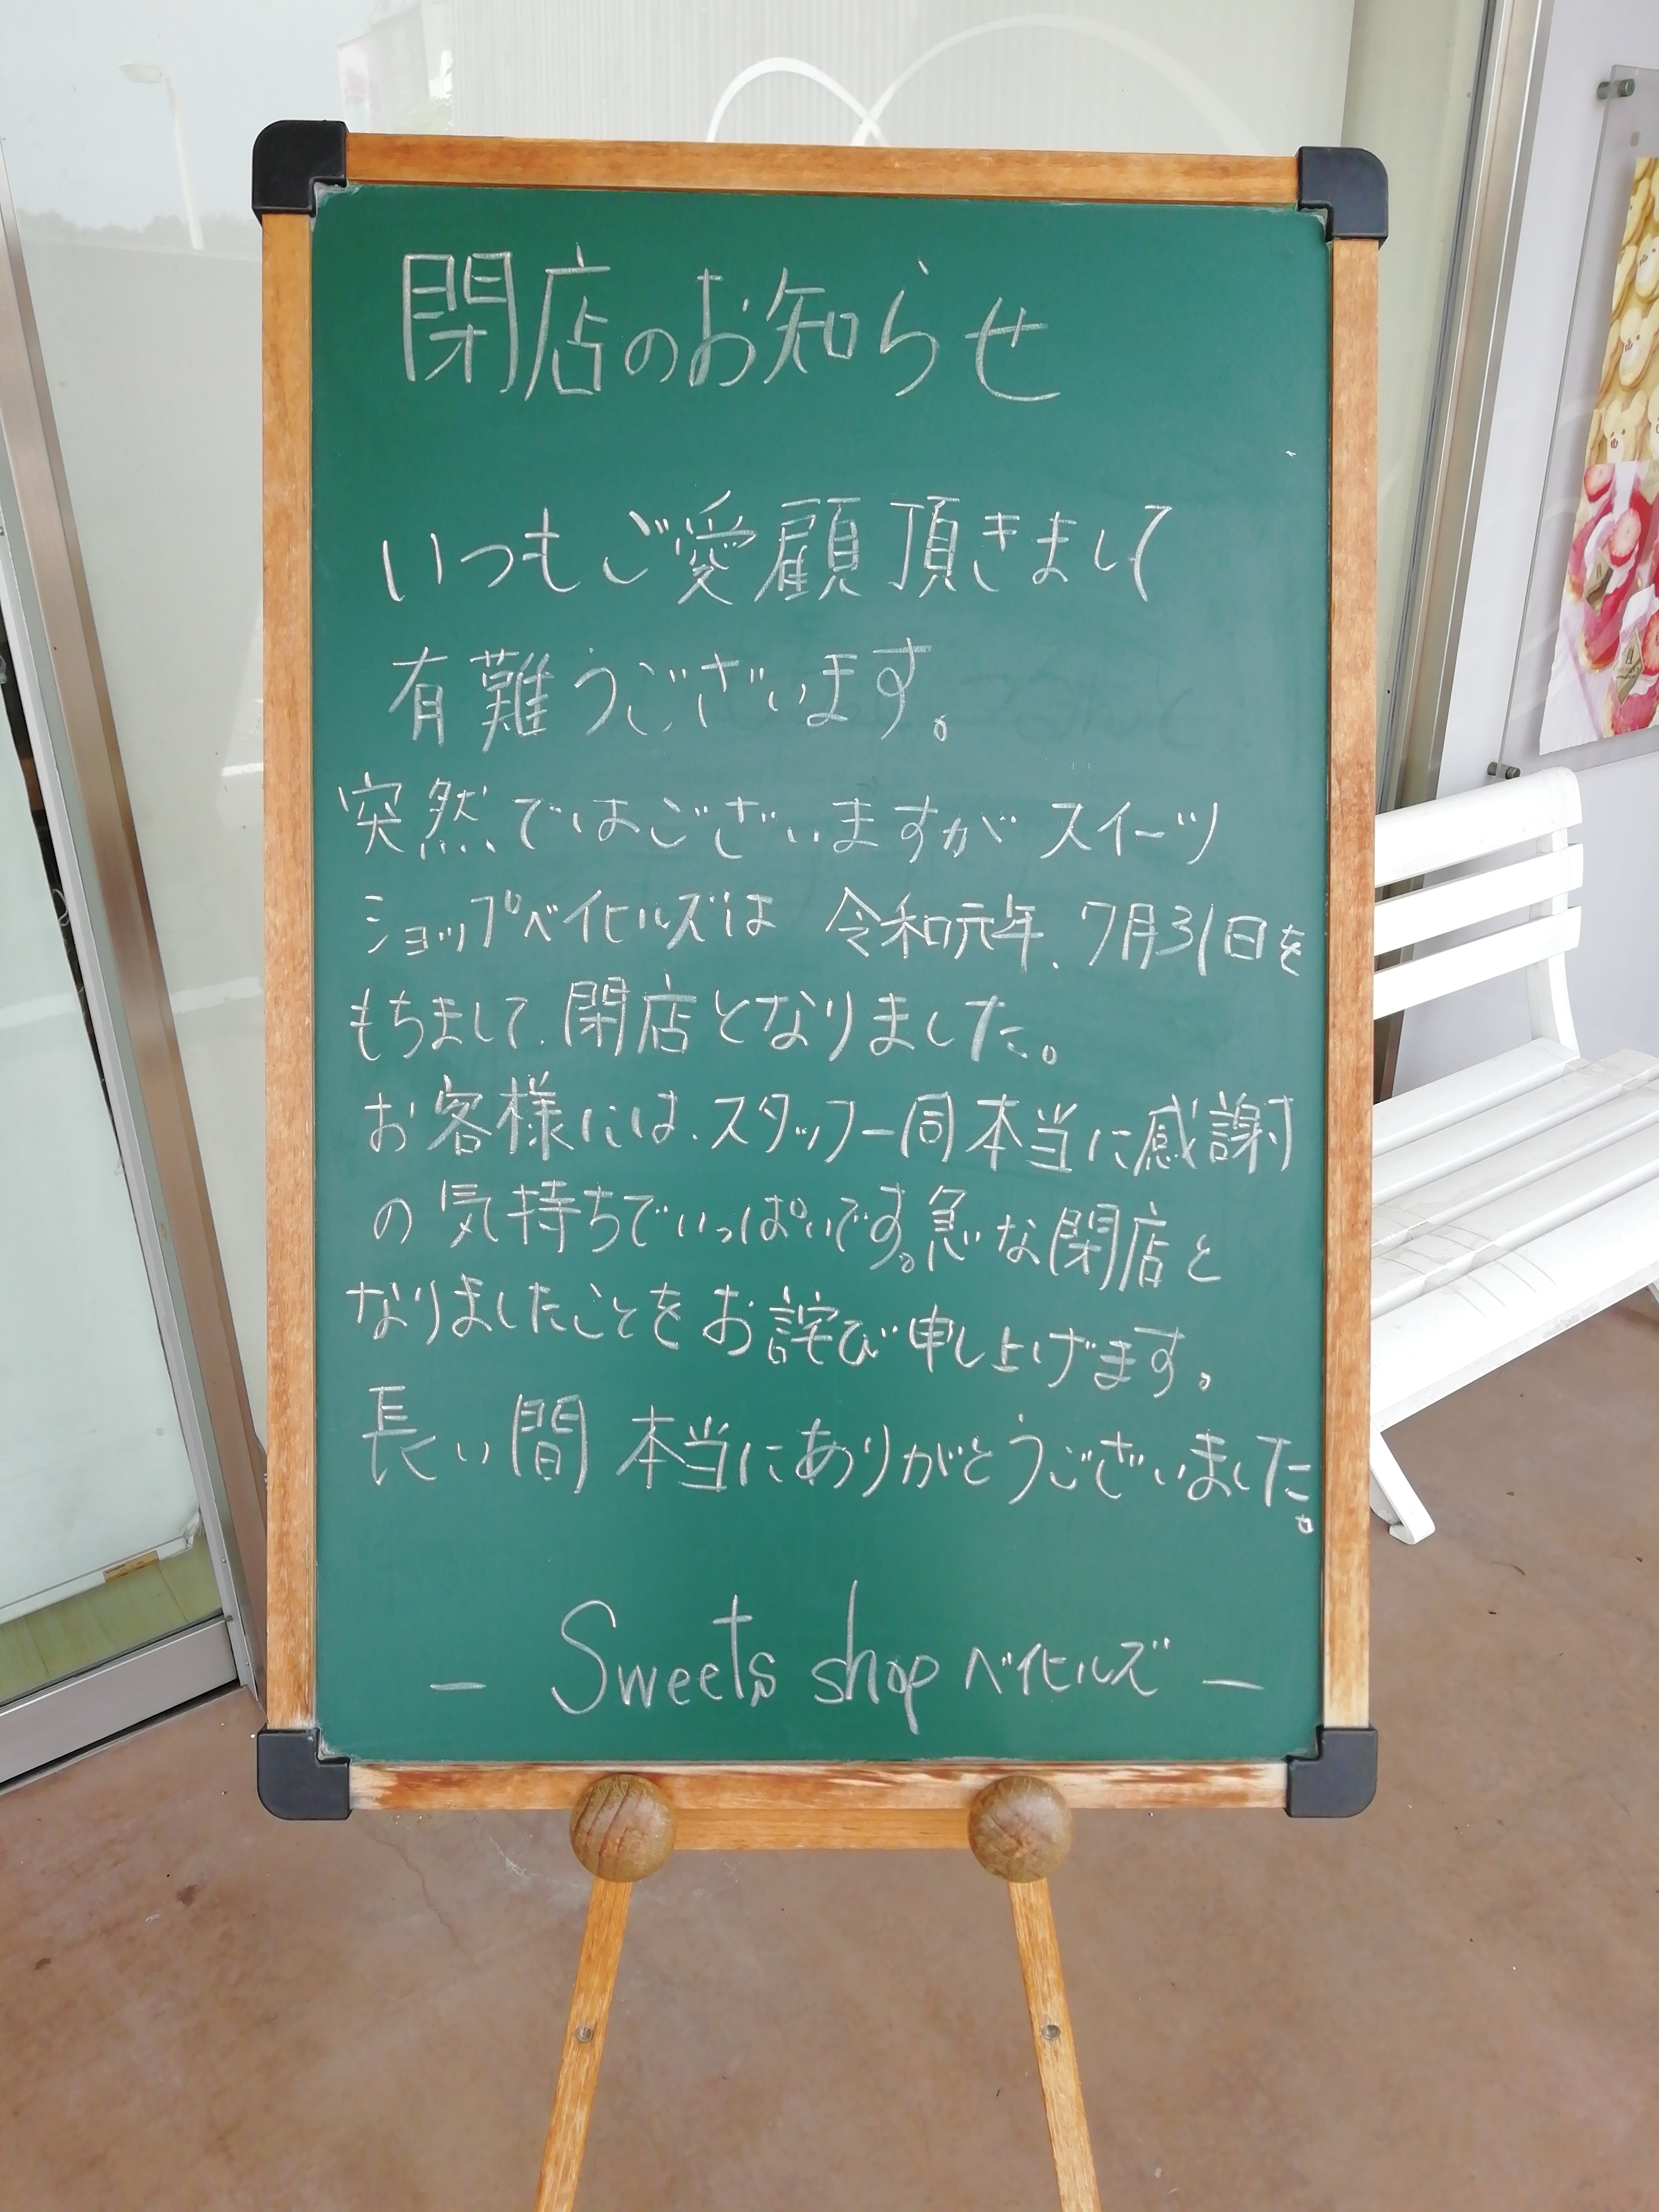 閉店のお知らせ
いつもご愛顧頂きまして
有難うございます。
突然ではございますが スイーツ
ショップベイヒルズは 令和元年、7月31日を
もちまして、閉店となりました。
お客様には、スタッフ一同本当に感謝
の気持ちでいっぱいです。急な閉店と
なりましたことをお詫び申し上げます。
長い間 本当にありがとうございました。
— Sweets shop ベイヒルズ —